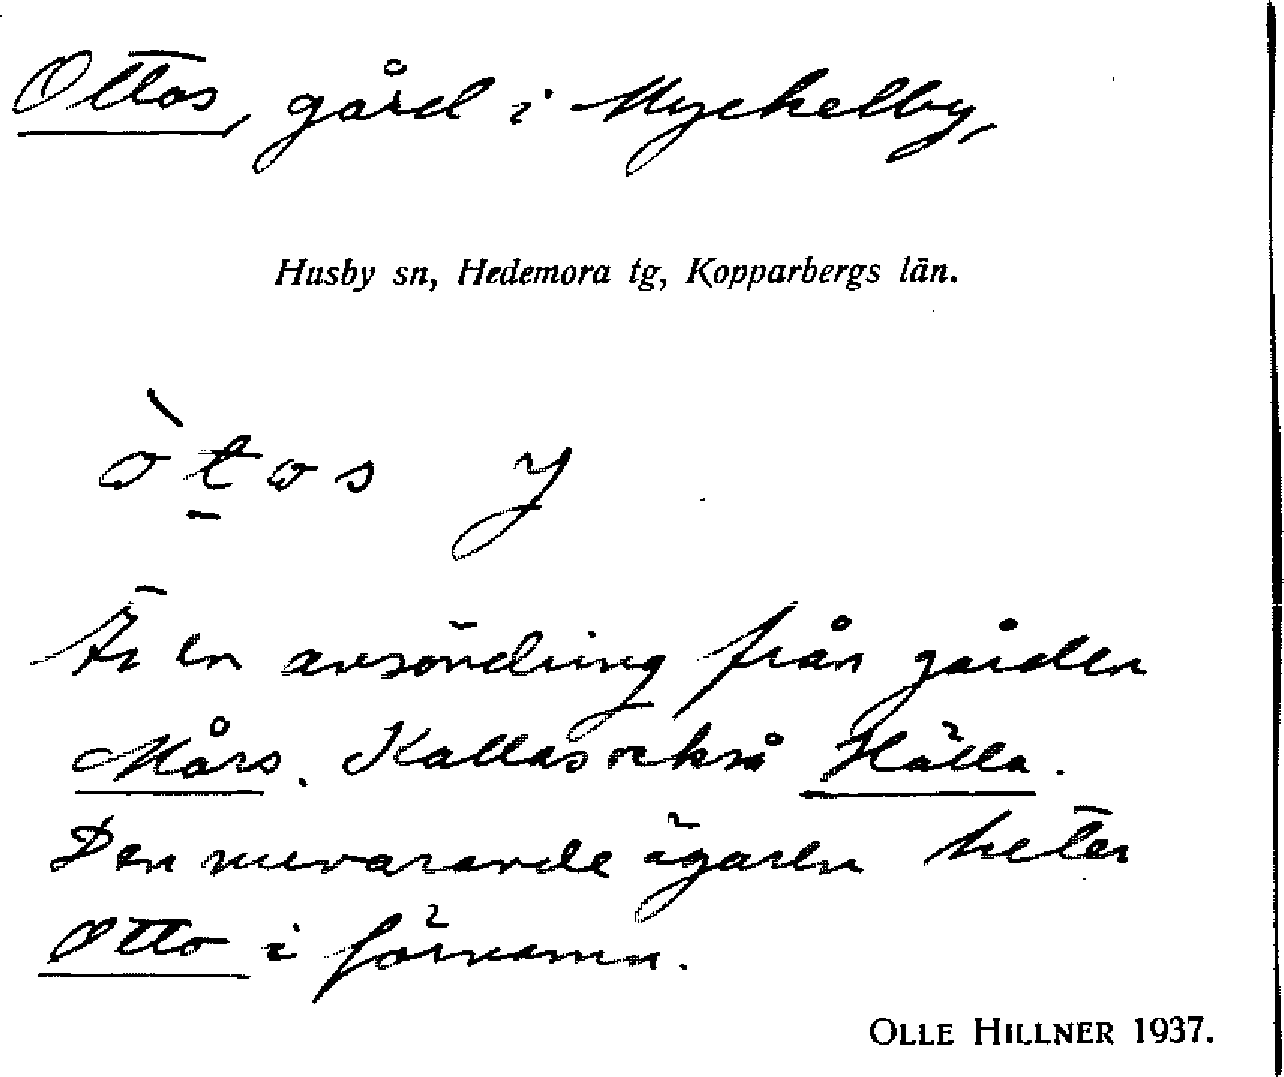 Ottos, gård i Myckelby,
Husby sn, Hedemora tg, Kopparbergs län.
òt̲os y
Är en avsöndring från gården
Mårs. Kallas också Hälla.
Den nuvarande ägaren heter
Otto i förnamn.
OLLE HILLNER 1937.